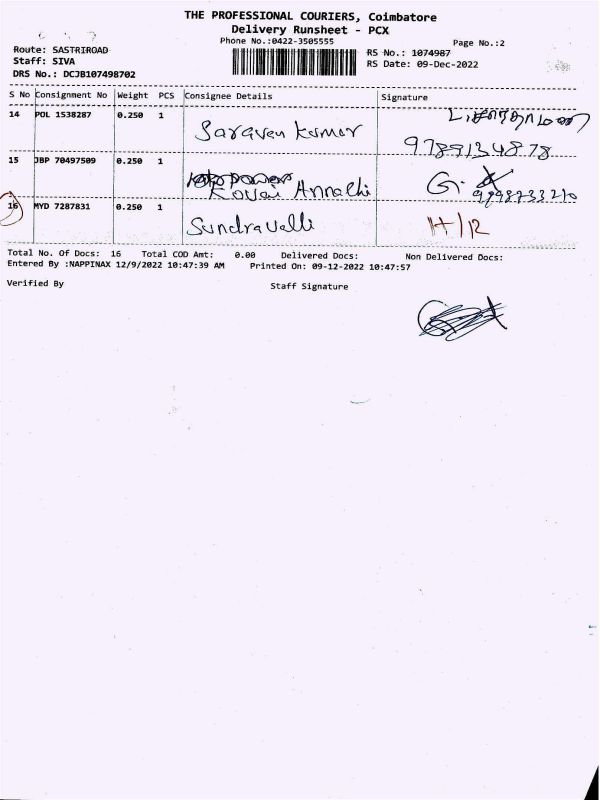 THE PROFESSIONAL COURIERS, Coimbatore
Delivery Runsheet - PCX
Phone No.:0422-3505555
Page No.:2
Route: SASTRIROAD
RS No.: 1074987
Staff: SIVA
RS Date: 09-Dec-2022
DRS No.: DCJB107498702
S No Consignment No Weight PCS Consignee Details Signature
14 POL 1538287 0.250 1 Saravan kumar 9789134878
15 JBP 70497509 0.250 1 Kovai Annachi G.
16 MYD 7287831 0.250 1 Sundravalli H/12
Total No. Of Docs: 16 Total COD Amt: 0.00 Delivered Docs: Non Delivered Docs:
Entered By :NAPPINAX 12/9/2022 10:47:39 AM Printed On: 09-12-2022 10:47:57
Verified By Staff Signature